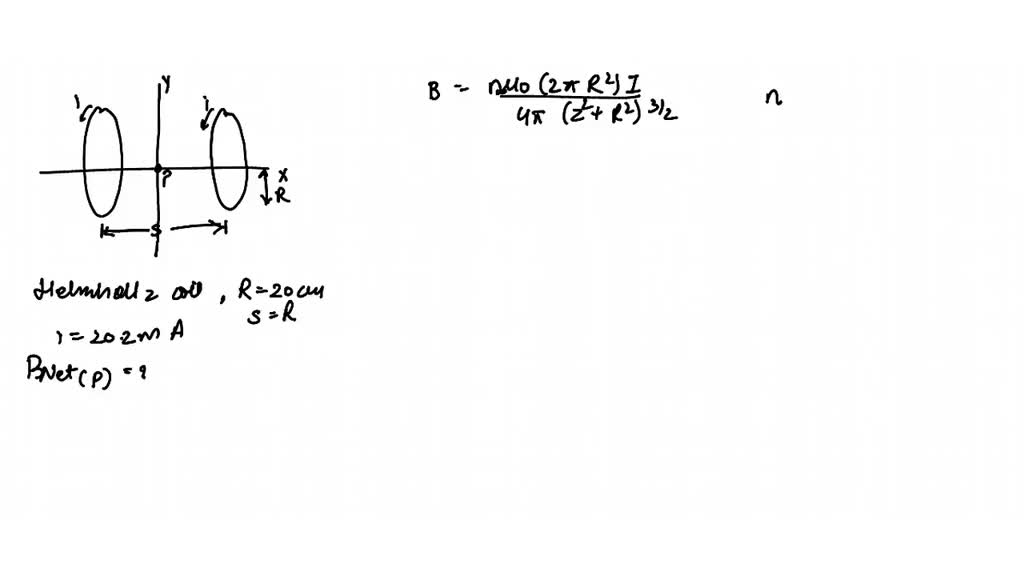 Y
i
i
P
X
R
S
Helmholtz coil, R=20 cm
S=R
i = 20.2 m A
BNet(P) = ?
B = nμ0 (2π R²) I
4π (Z² + R²) 3/2
n